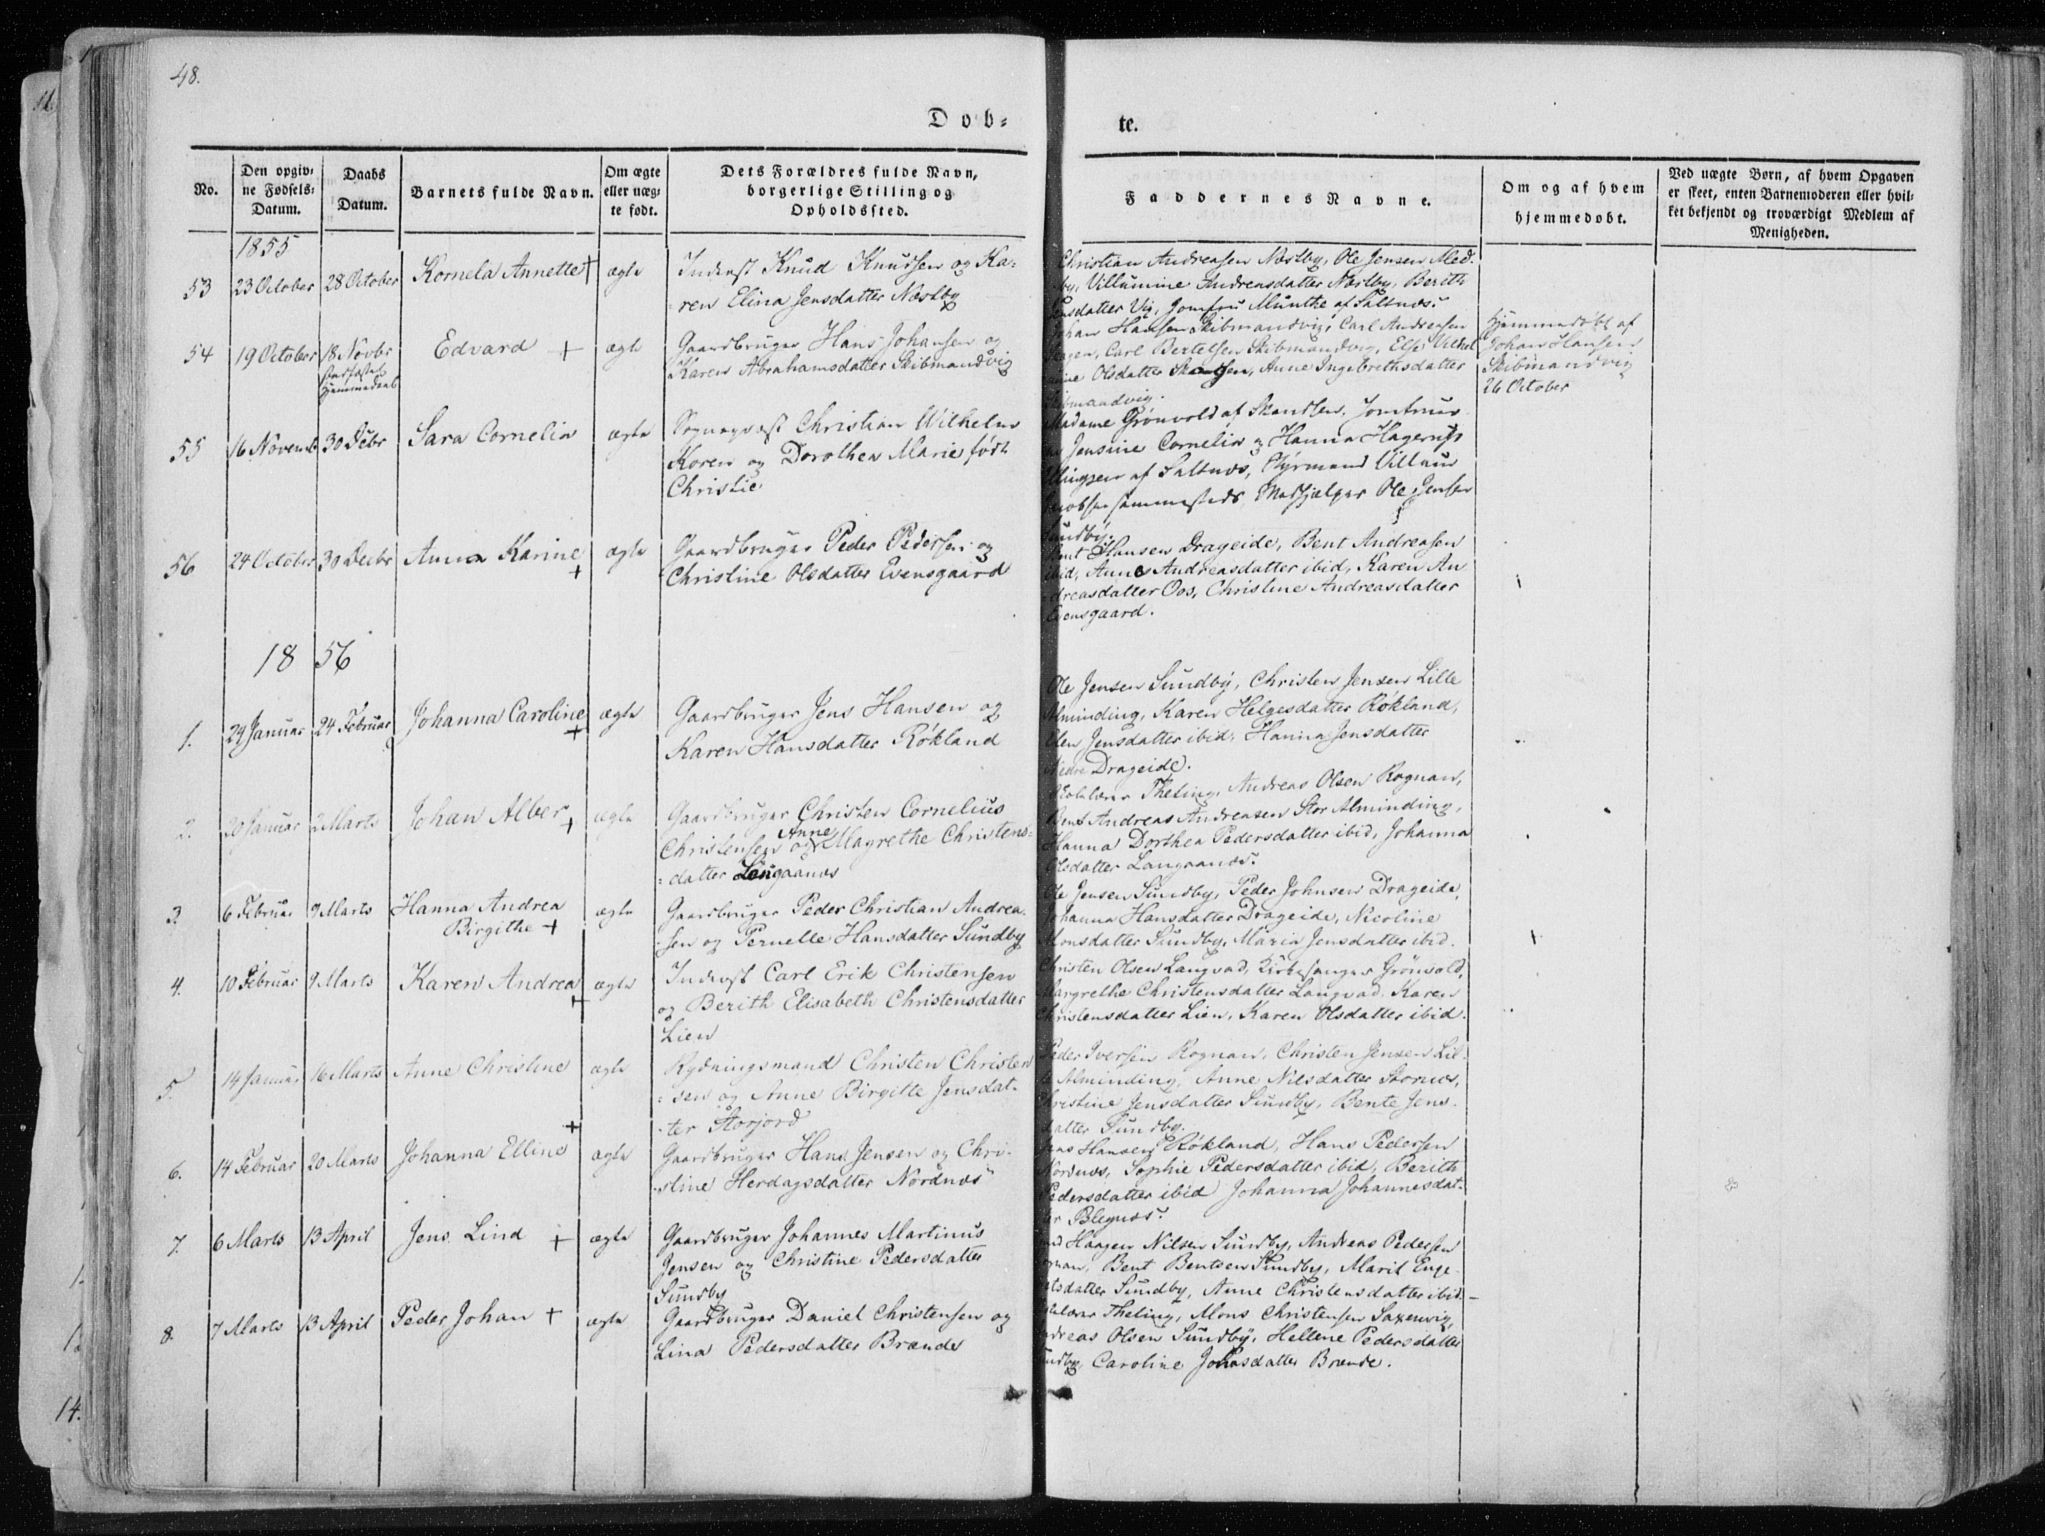 48.
Døb=
te.
No.
Den opgiv-
ne Fødsels-
Datum.
Daabs
Datum.
Barnets fulde Navn.
Om ægte
eller uæg-
te født.
Dets Forældres fulde Navn,
borgerlige Stilling og
Opholdssted.
Faddernes Navne.
Om og af hvem
hjemmedøbt.
Ved uægte Børn, af hvem Opgaven
er skeet, enten Barnemoderen eller hvil-
ket bekjendt og troværdigt Medlem af
Menigheden.
1855
53 23 October 28 October Kornela Annette + ægte
Inderst Knud Knudsen og Ka-
ren Elina Jensdatter Næstby
Christian Andreasen Næstby, Ole Jensen Med-
by, Villumine Andreasdatter Næstby, Berith
Jensdatter Vig, Jomfru Munthe af Saltnæs.
54 19 October 18 Novbr Edvard + ægte
Hjemmedaab
Gaardbruger Hans Johansen og
Karen Abrahamsdatter Skibmandvig
Johan Hansen Skibmandvig, Carl Andreasen
Carl Bertelsen Skibmandvig, Else Vilhel
mine Olsdatter Anne Ingebrethsdatter
Skibmandvig.
Hjemmedøbt af
Johan Hansen
Skibmandvig
26 October
55 16 Novemb 30 Debr Sara Cornelia ægte
Sogneprest Christian Wilhelm
Koren og Dorothea Marie født
Christie
Madame Grønvold af Skandsen, Jomfruer
Jensine Cornelia og Hanna Hagerup
Ellingsen af Saltnæs, Styrmand Villum
Jacobsen sammesteds Medhjælper Ole Jensen
Sundby.
56 24 October 30 Decbr Anna Karine + ægte
Gaardbruger Peder Pedersen og
Christine Olsdatter Evensgaard
Bent Hansen Drageide, Bent Andreasen
ibid, Anne Andreasdatter ibid, Karen An
dreasdatter Oos, Christine Andreasdatter
Evensgaard.
1856
1. 29 Januar 24 Februar Johanna Caroline + ægte
Gaardbruger Jens Hansen og
Karen Hansdatter Røkland
Ole Jensen Sundby, Christen Jensen Lille
Alminding, Karen Helgesdatter Røkland,
Elen Jensdatter ibid, Hanna Jensdatter
Nedre Drageide.
2. 20 Januar 2 Marts Johan Alber + ægte
Gaardbruger Christen Cornelius
Christensen og Anne Magrethe Christens-
datter Langaanæs
Theting, Andreas Olsen Rognan,
Bent Andreas Andreasen Stor Alminding,
Hanna Dorthea Pedersdatter ibid, Johanna
Olsdatter Langaanæs.
3. 6 Februar 9 Marts Hanna Andrea
Birgithe + ægte
Gaardbruger Peder Christian Andrea-
sen og Pernelle Hansdatter Sundby
Ole Jensen Sundby, Peder Johnsen Drageide,
Johanna Hansdatter Drageide, Nicoline
Monsdatter Sundby, Maria Jensdatter ibid.
4. 10 Februar 9 Marts Karen Andrea + ægte
Inderst Carl Erik Christensen
og Berith Elisabeth Christensdatter
Lien
Christen Olsen Langvad, Kirkesanger Grønvold,
Margrethe Christensdatter Langvad, Karen
Christensdatter Lien, Karen Olsdatter ibid.
5. 14 Januar 16 Marts Anne Christine + ægte
Rydningsmand Christen Christen
sen og Anne Birgitte Jensdat-
ter Storjord
Peder Iversen Rognan, Christen Jensen Lil-
le Alminding, Anne Nilsdatter Stornæs,
Christine Jensdatter Sundby, Bente Jens-
datter Sundby.
6. 14 Februar 20 Marts Johanna Elline ægte
Gaardbruger Hans Jensen og Chri-
stine Herdagsdatter Nordnæs
Jens Hansen Røkland, Hans Pedersen
Nordnæs, Sophie Pedersdatter ibid, Berith
Pedersdatter ibid Johanna Johannesdat-
ter Blegnæs.
7. 6 Marts 13 April Jens Lind + ægte
Gaardbruger Johannes Martinus
Jensen og Christine Pedersdatter
Sundby
Haagen Nilsen Sundby, Andreas Pedersen
Rognan, Bent Bentsen Sundby, Marit Enge-
datter Sundby, Anne Christensdatter ibid.
8. 7 Marts 13 April Peder Johan + ægte
Gaardbruger Daniel Christensen og
Lina Pedersdatter Brænde
Theting, Mons Christensen Saxenvig,
Andreas Olsen Sundby, Hellene Pedersdatter
Sundby, Caroline Johnsdatter Brænde.
14.